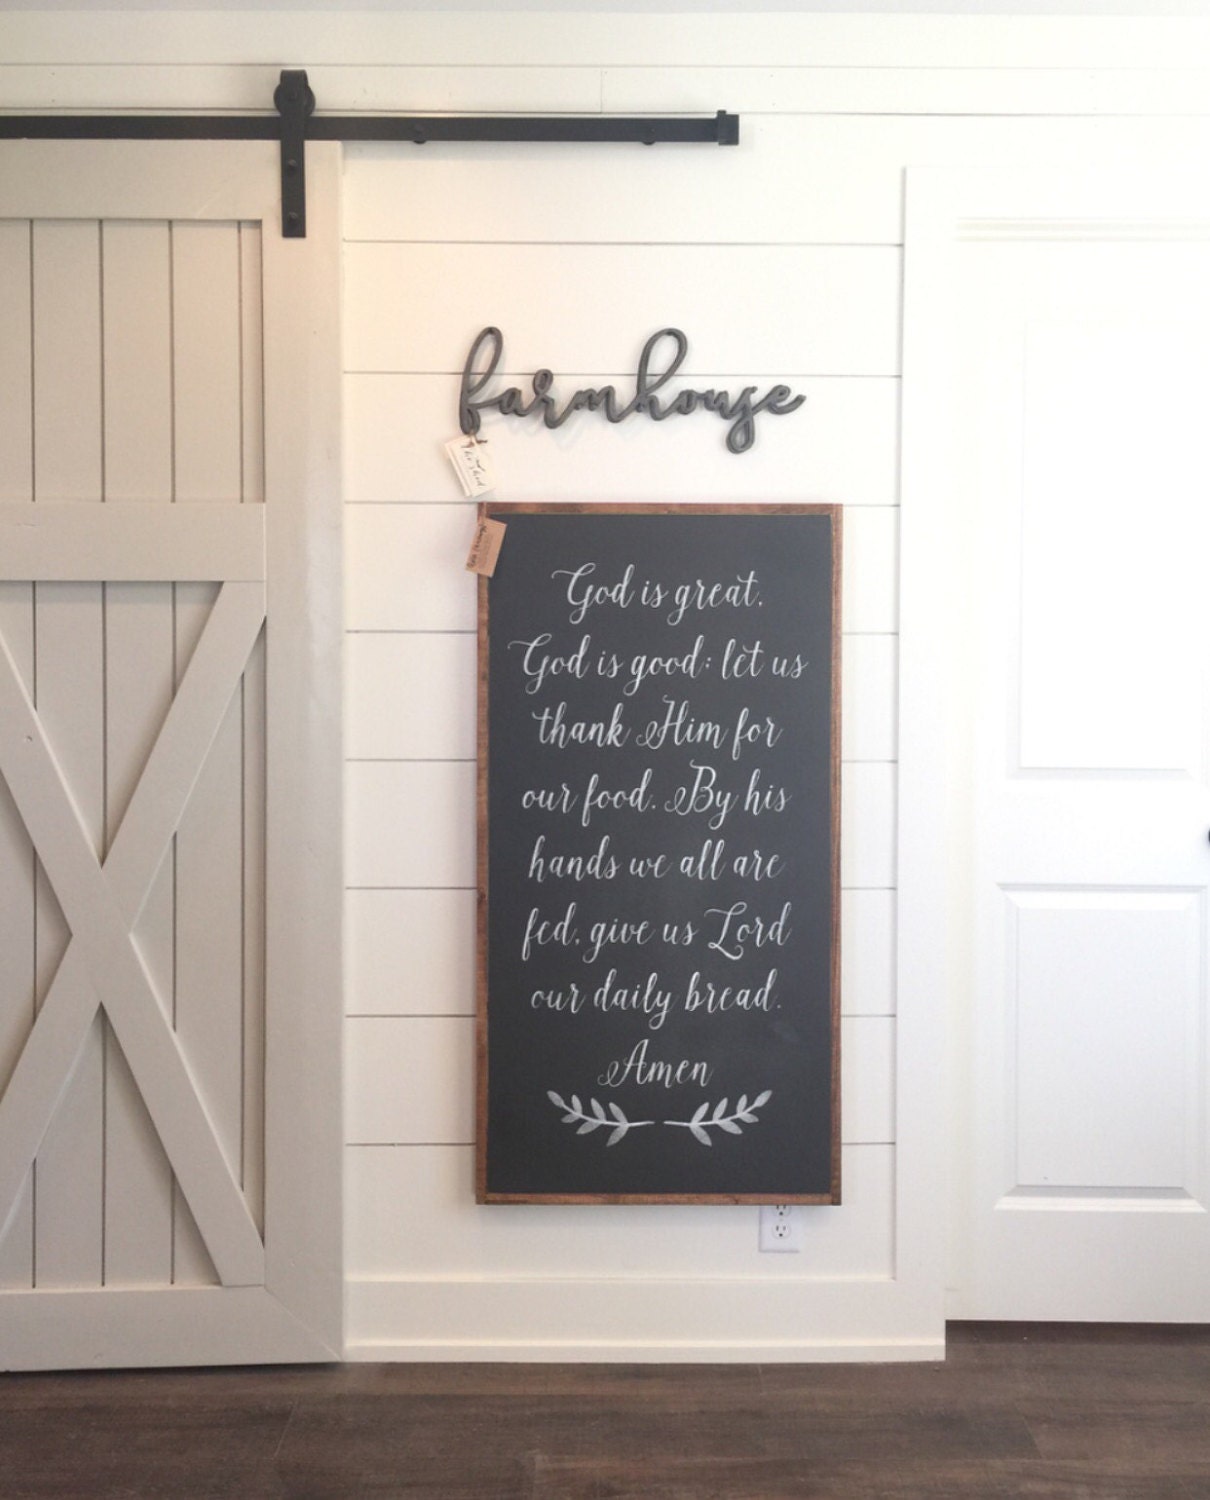 farmhouse
The Shed
God is great,
God is good; let us
thank Him for
our food. By his
hands we all are
fed, give us Lord
our daily bread.
Amen